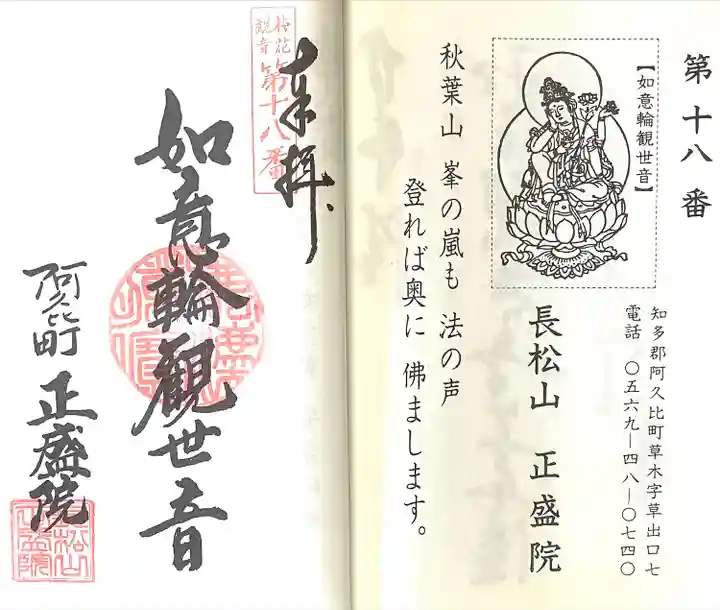 第十八番
【如意輪観世音】
知多郡阿久比町草木字草出口七
電話 〇五六九―四八―〇七四〇
長松山 正盛院
秋葉山 峯の嵐も 法の声
登れば奥に 佛まします。
奉拝、
梅花
観音
第十八番
如意輪観世音
阿久比町 正盛院
松山
正盛院